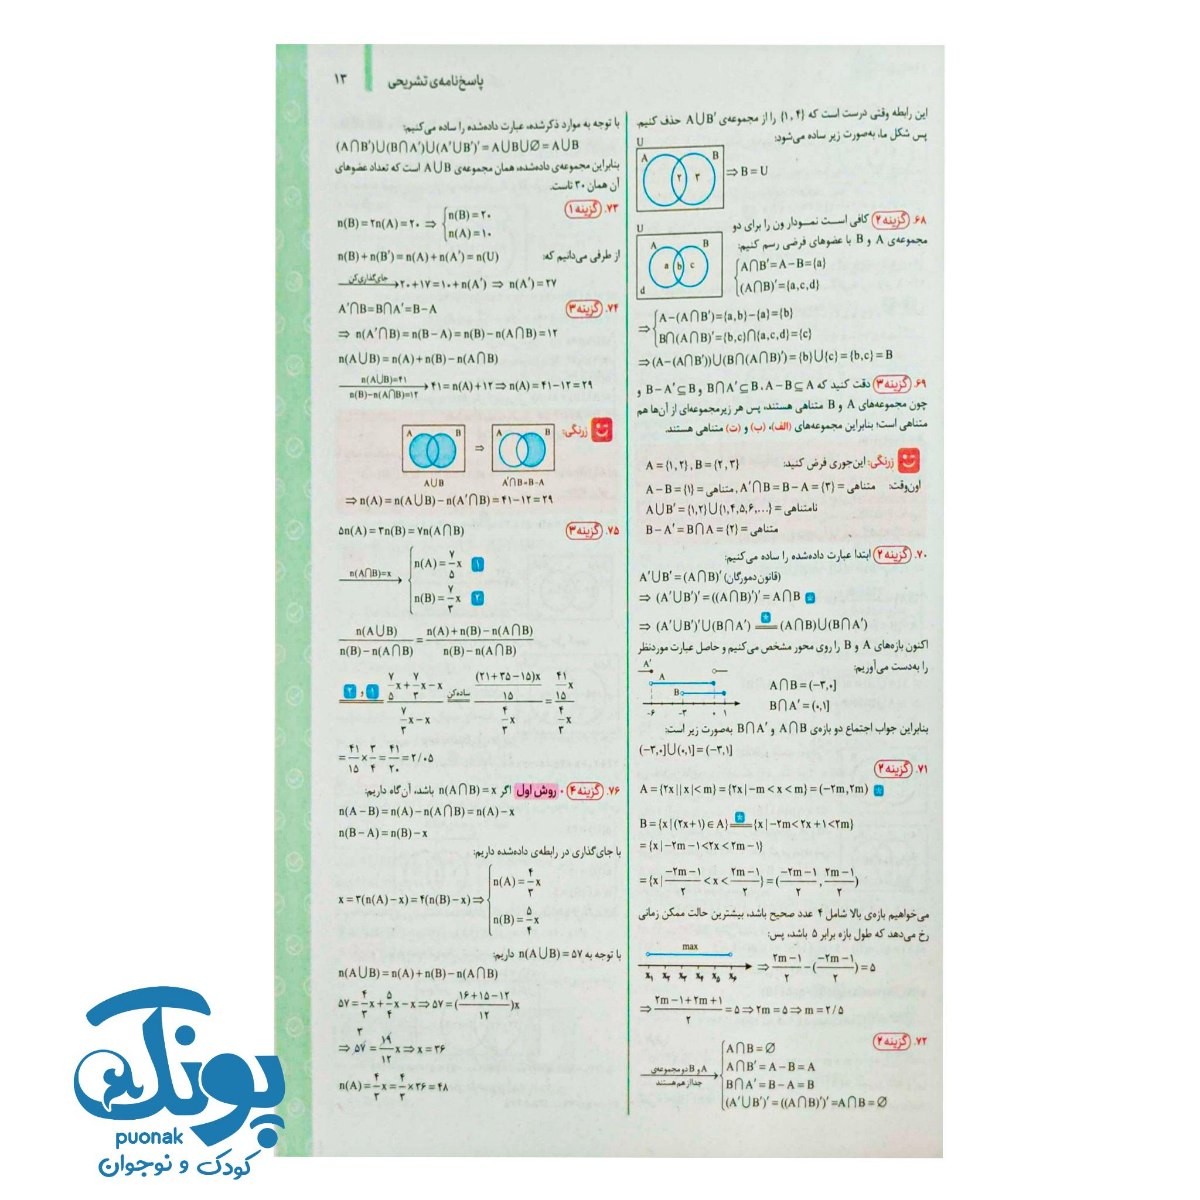 پاسخ‌نامه‌ی تشریحی ۱۳
این رابطه وقتی درست است که {۱,۴} را از مجموعه‌ی A∪B′ حذف کنیم.
پس شکل ما، به‌صورت زیر ساده می‌شود:
U
A B
۲ ۳
⇒ B = U
۶۸. گزینه ۲ کافی است نمودار ون را برای دو
مجموعه‌ی A و B با عضوهای فرضی رسم کنیم:
U
A B
a b c
d
A∩B′=A−B={a}
(A∩B)′={a,c,d}
⇒ A−(A∩B′)={a,b}−{a}={b}
B∩(A∩B)′={b,c}∩{a,c,d}={c}
⇒(A−(A∩B′))∪(B∩(A∩B)′)={b}∪{c}={b,c}=B
۶۹. گزینه ۳ دقت کنید که A−B⊆A، B∩A′⊆B و B−A′⊆B و
چون مجموعه‌های A و B متناهی هستند، پس هر زیرمجموعه‌ای از آن‌ها هم
متناهی است؛ بنابراین مجموعه‌های (الف)، (ب) و (ت) متناهی هستند.
زرنگی: این‌جوری فرض کنید: A={۱,۲}, B={۲,۳}
اون‌وقت: A−B={۱}= متناهی, A′∩B=B−A={۳}= متناهی
A∪B′={۱,۲}∪{۱,۴,۵,۶,...}= نامتناهی
B−A′=B∩A={۲}= متناهی
۷۰. گزینه ۲ ابتدا عبارت داده‌شده را ساده می‌کنیم:
A′∪B′=(A∩B)′ (قانون دمورگان)
⇒ (A′∪B′)′=((A∩B)′)′=A∩B *
⇒ (A′∪B′)′∪(B∩A′) =* (A∩B)∪(B∩A′)
اکنون بازه‌های A و B را روی محور مشخص می‌کنیم و حاصل عبارت موردنظر
را به‌دست می‌آوریم:
A′
A
B
−۶ −۳ ۰ ۱
A∩B=(−۳,۰]
B∩A′=(۰,۱]
بنابراین جواب اجتماع دو بازه‌ی A∩B و B∩A′ به‌صورت زیر است:
(−۳,۰]∪(۰,۱]=(−۳,۱]
۷۱. گزینه ۲
A={۲x||x|<m}={۲x|−m<x<m}=(−۲m,۲m) *
B={x|(۲x+۱)∈A} =* {x|−۲m<۲x+۱<۲m}
={x|−۲m−۱<۲x<۲m−۱}
={x|(−۲m−۱)/۲<x<(۲m−۱)/۲}=((−۲m−۱)/۲,(۲m−۱)/۲)
می‌خواهیم بازه‌ی بالا شامل ۴ عدد صحیح باشد، بیشترین حالت ممکن زمانی
رخ می‌دهد که طول بازه برابر ۵ باشد، پس:
max
x۱ x۲ x۳ x۴ x۵ x۶
⇒ (۲m−۱)/۲−((−۲m−۱)/۲)=۵
⇒ (۲m−۱+۲m+۱)/۲=۵⇒۲m=۵⇒m=۲/۵
۷۲. گزینه ۴
A و B دو مجموعه‌ی جدا از هم هستند →
A∩B=∅
A∩B′=A−B=A
B∩A′=B−A=B
(A′∪B′)′=((A∩B)′)′=A∩B=∅
با توجه به موارد ذکرشده، عبارت داده‌شده را ساده می‌کنیم:
(A∩B′)∪(B∩A′)∪(A′∪B′)′=A∪B∪∅=A∪B
بنابراین مجموعه‌ی داده‌شده، همان مجموعه‌ی A∪B است که تعداد عضوهای
آن همان ۳۰ تاست.
۷۳. گزینه ۱
n(B)=۲n(A)=۲۰ ⇒ n(B)=۲۰
n(A)=۱۰
از طرفی می‌دانیم که: n(B)+n(B′)=n(A)+n(A′)=n(U)
جای‌گذاری‌کن → ۲۰+۱۷=۱۰+n(A′) ⇒ n(A′)=۲۷
۷۴. گزینه ۳ A′∩B=B∩A′=B−A
⇒ n(A′∩B)=n(B−A)=n(B)−n(A∩B)=۱۲
n(A∪B)=n(A)+n(B)−n(A∩B)
n(A∪B)=۴۱
n(B)−n(A∩B)=۱۲ → ۴۱=n(A)+۱۲⇒n(A)=۴۱−۱۲=۲۹
زرنگی:
A B ⇒ A B
A∪B A′∩B=B−A
⇒n(A)=n(A∪B)−n(A′∩B)=۴۱−۱۲=۲۹
۷۵. گزینه ۳ ۵n(A)=۳n(B)=۷n(A∩B)
n(A∩B)=x → n(A)=۷/۵ x ۱
n(B)=۷/۳ x ۲
n(A∪B)/(n(B)−n(A∩B))=(n(A)+n(B)−n(A∩B))/(n(B)−n(A∩B))
۱ و ۲ = (۷/۵ x+۷/۳ x−x)/(۷/۳ x−x) ساده‌کن = ((۲۱+۳۵−۱۵)x/۱۵)/(۴/۳ x)=(۴۱/۱۵ x)/(۴/۳ x)
=۴۱/۱۵×۳/۴=۴۱/۲۰=۲/۰۵
۷۶. گزینه ۴ • روش اول اگر n(A∩B)=x باشد، آن‌گاه داریم:
n(A−B)=n(A)−n(A∩B)=n(A)−x
n(B−A)=n(B)−x
با جای‌گذاری در رابطه‌ی داده‌شده داریم:
x=۳(n(A)−x)=۴(n(B)−x)⇒ n(A)=۴/۳ x
n(B)=۵/۴ x
با توجه به n(A∪B)=۵۷ داریم:
n(A∪B)=n(A)+n(B)−n(A∩B)
۵۷=۴/۳ x+۵/۴ x−x⇒۵۷=((۱۶+۱۵−۱۲)/۱۲)x
۳
⇒ ۵۷=۱۹/۱۲ x⇒x=۳۶
n(A)=۴/۳ x=۴/۳×۳۶=۴۸
پونک
puonak
کودک و نوجوان